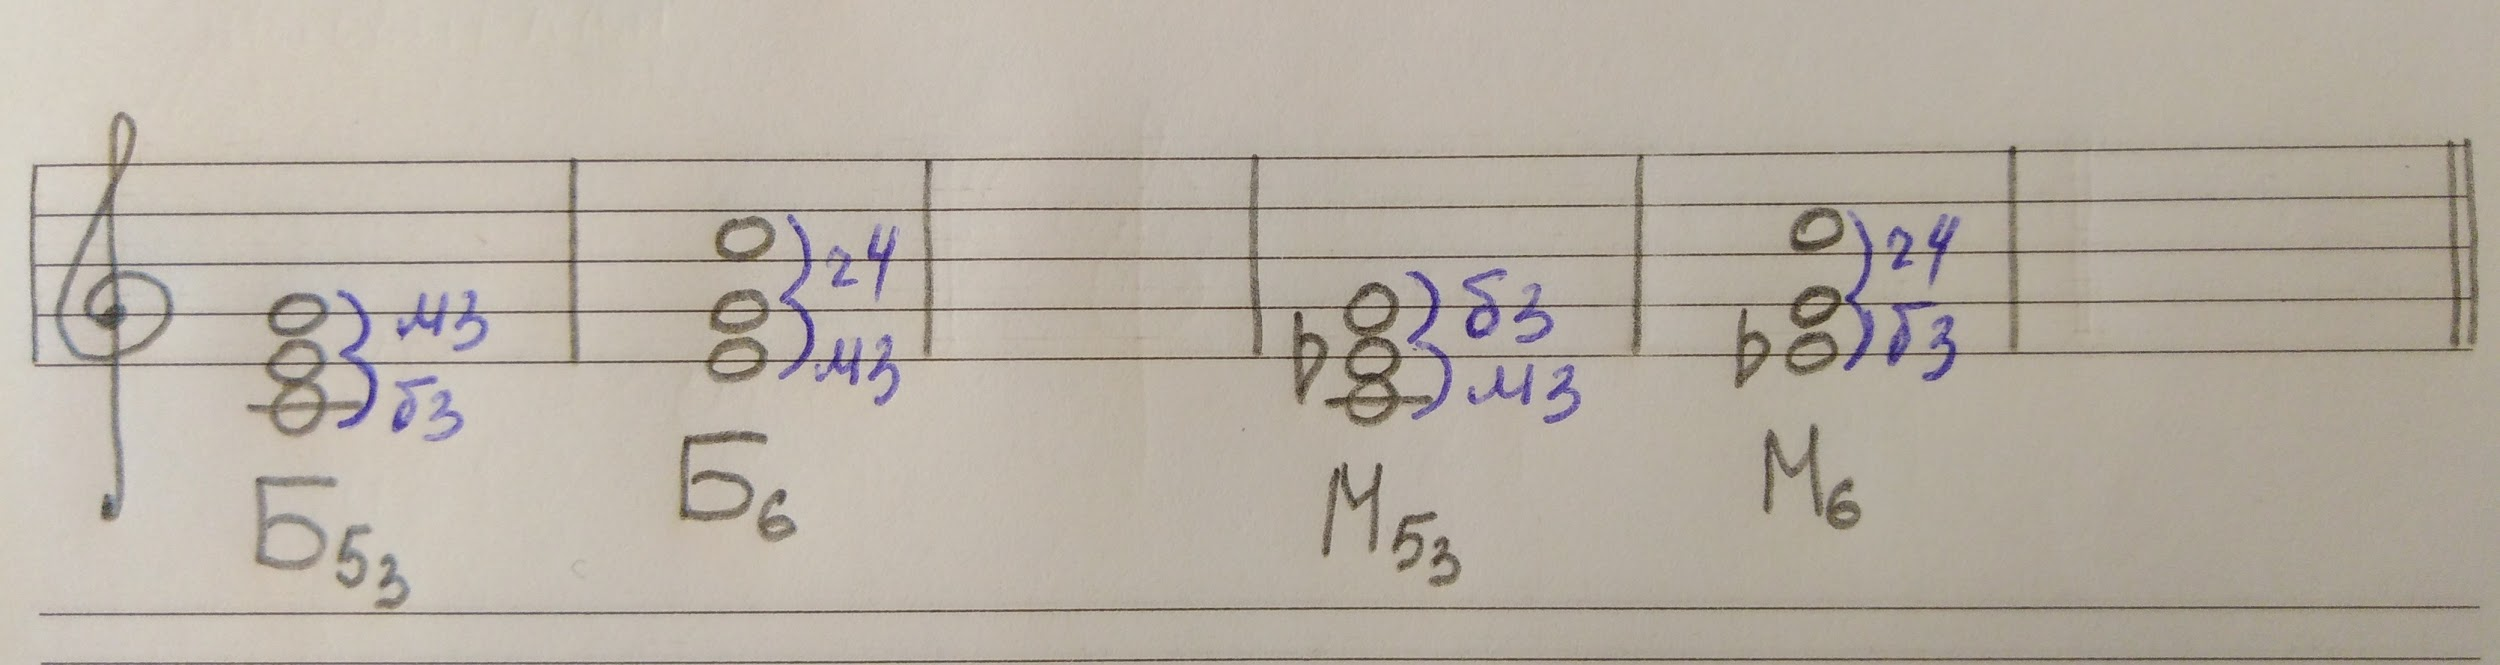 м3
б3
Б53
ч4
м3
Б6
б3
м3
М53
ч4
б3
М6